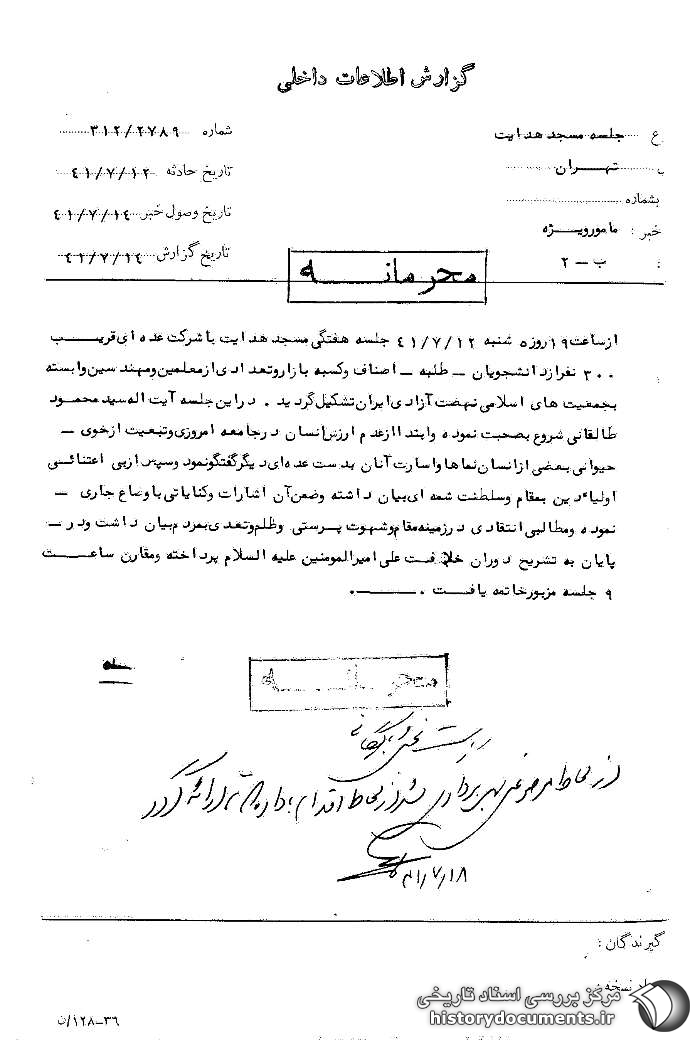 گزارش اطلاعات داخلی
ع جلسه مسجد هدایت
شماره ۳۱۲/۲۷۸۹
تهـران
تاریخ حادثه ۴۱/۷/۱۲
بشماره
تاریخ وصول خبر ۴۱/۷/۱۴
خبر : مامورویـژه
تاریخ گزارش ۴۱/۷/۱۴
: ب – ۲
محرمانـه
ازساعت ۱۹ روزه شنبه ۴۱/۷/۱۲ جلسه هفتگی مسجد هدایت با شرکت عده ای قریـب
۳۰۰ نفراز دانشجویان – طلبه – اصناف وکسبه بازار وتعدادی ازمعلمین ومهندسین وابسته
بجمعیت های اسلامی نهضت آزادی ایران تشکیل گردید . دراین جلسه آیت اله سید محمود
طالقانی شروع بصحبت نموده وابتدا از عدم ارزش انسان درجامعه امروزی وتبعیت ازخوی –
حیوانی بعضی از انسان نماها واسارت آنان بدست عده ای دیگر گفتگو نمود وسپس ازبی اعتنائـی
اولیاء دین بمقام وسلطنت شمه ای بیان داشته وضمن آن اشارات وکنایاتی باوضاع جاری –
نموده ومطالبی انتقادی درزمینه مقام وشهوت پرستی وظلم وتعدی بمردم بیان داشت ودر –
پایان به تشریح دوران خلافت علی امیرالمومنین علیه السلام پرداخته ومقارن ساعـت
۹ جلسه مزبورخاتمه یافـت .
محرمانـه
از لحاظ اقدام ارائه گردد
۴۱/۷/۱۸
گیرندگان :
نسخه
۱۲۸-۳۶/ن
مرکز بررسی اسناد تاریخی
historydocuments.ir